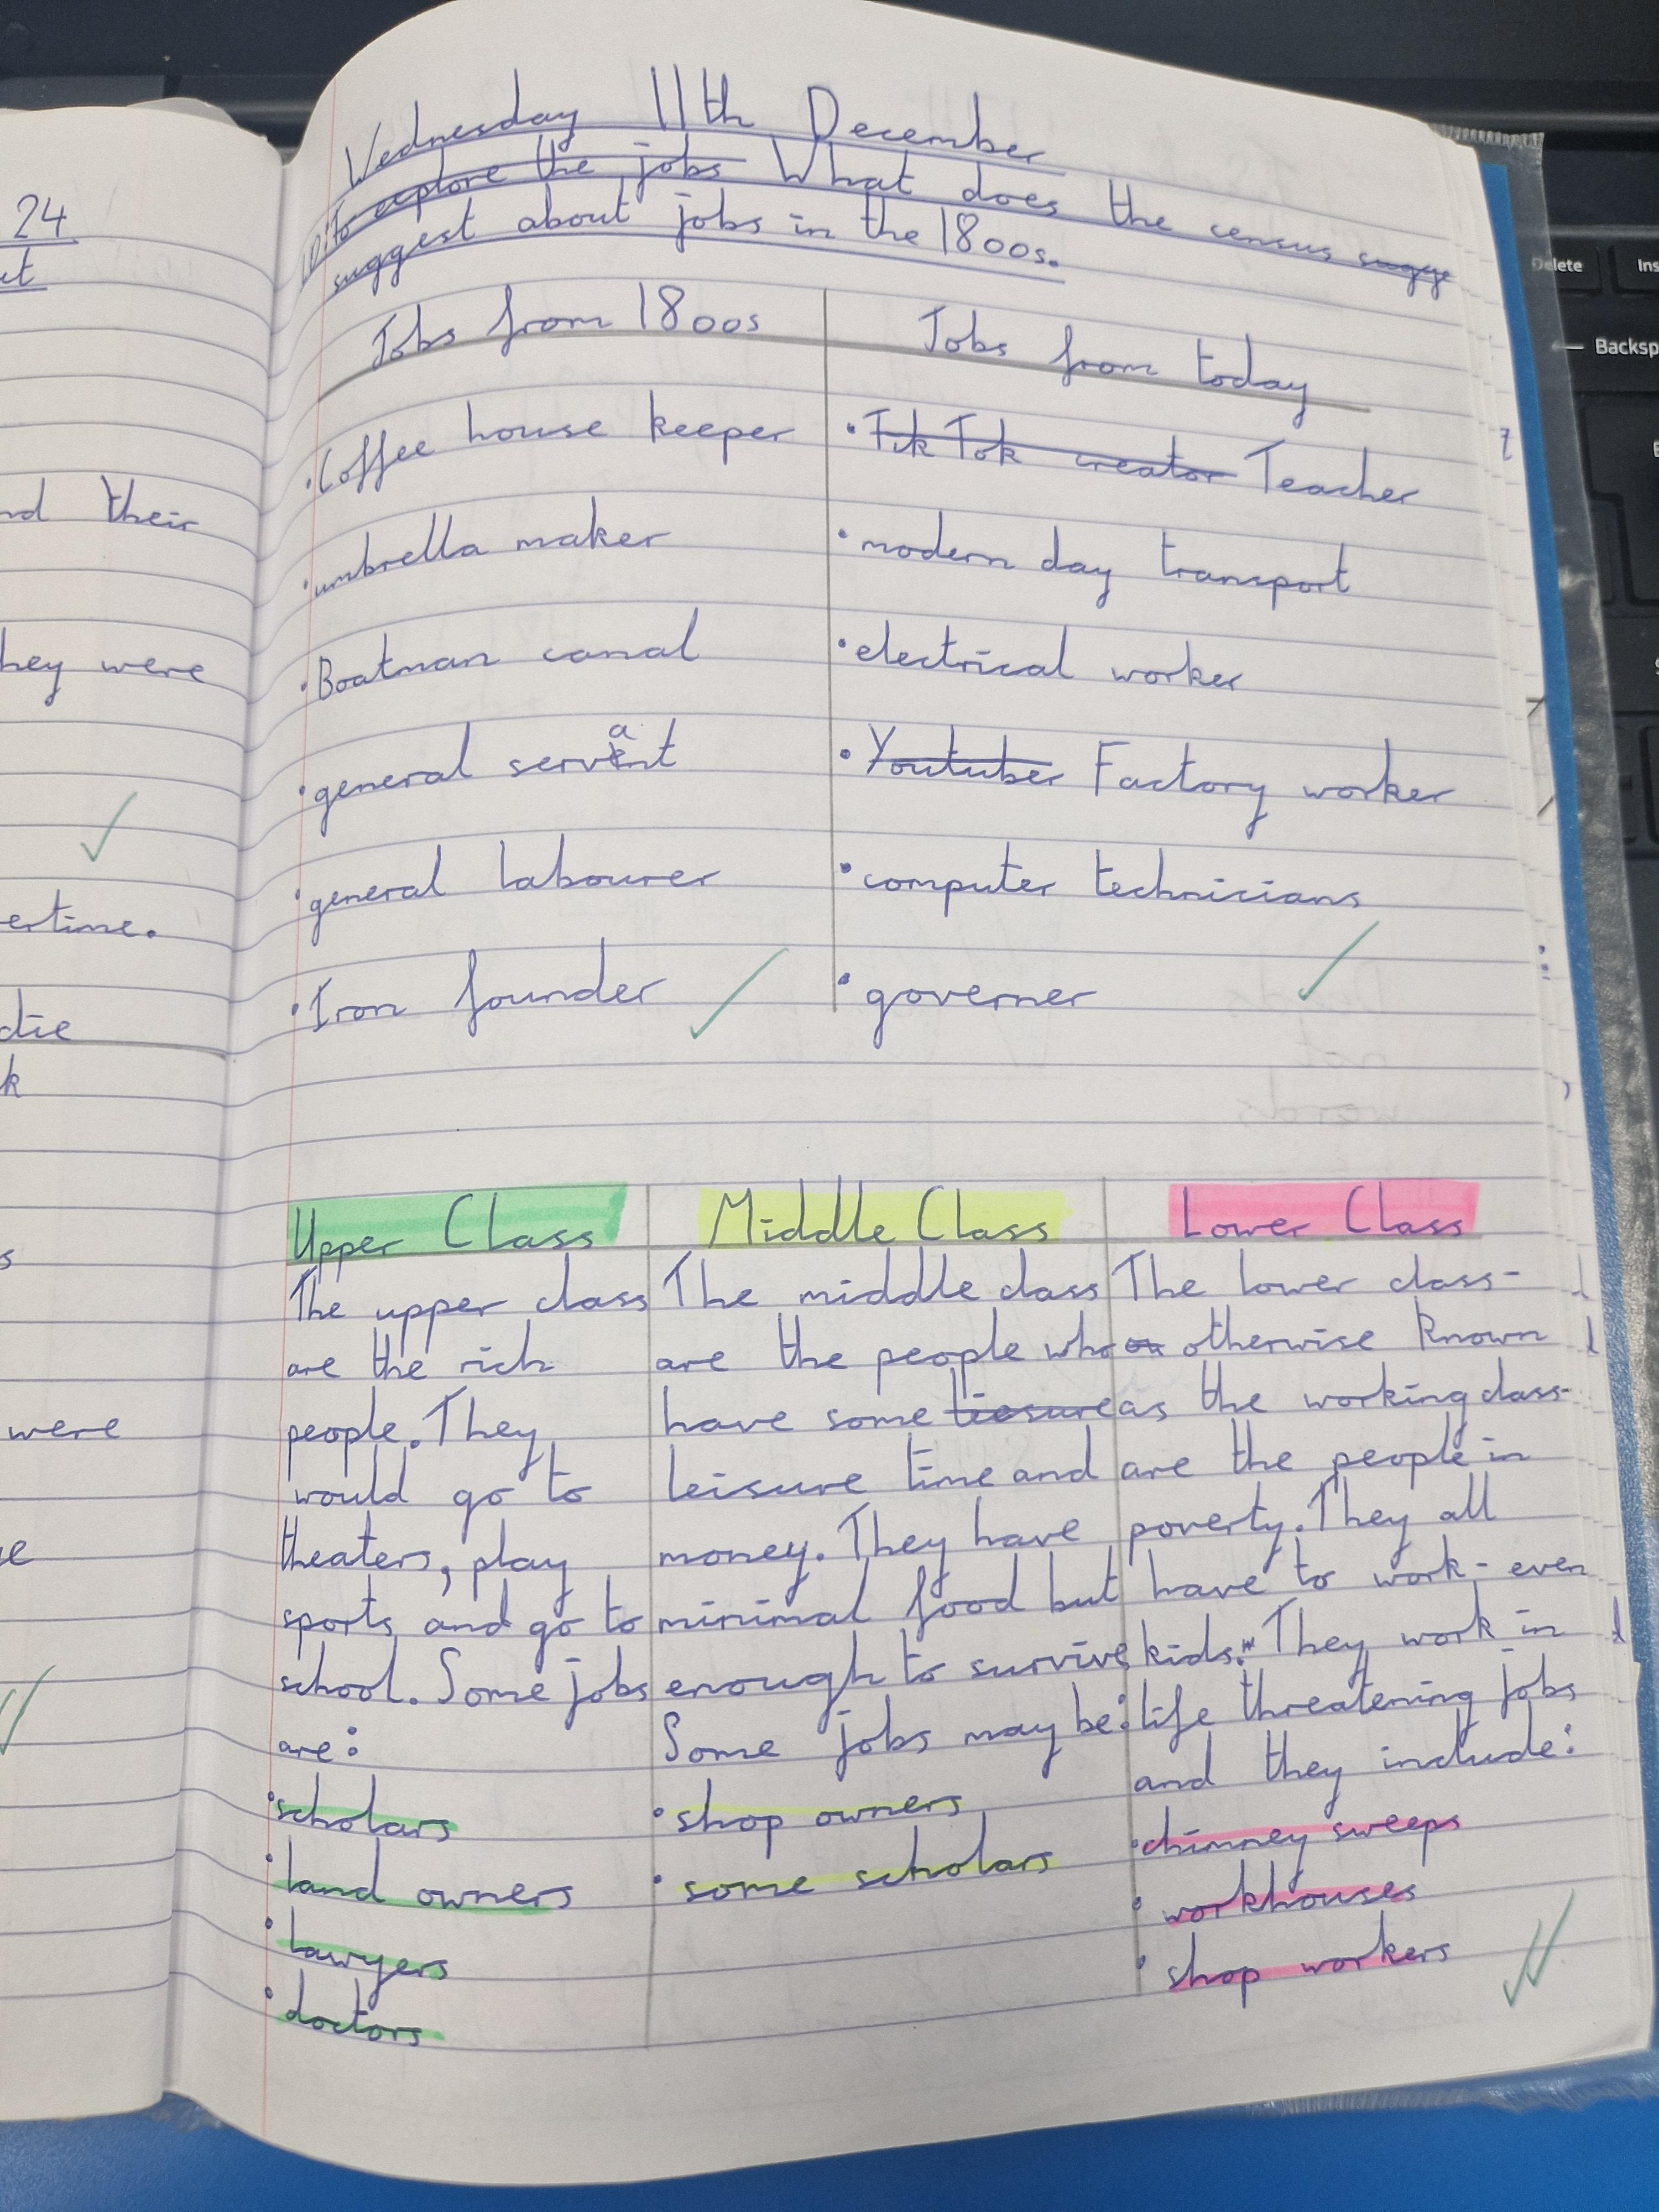 24
nd their
hey were
ertime.
die
k
s
were
Wednesday 11th December
LO: To explore the jobs What does the census sugge
suggest about jobs in the 1800s.
Jobs from 1800s
Jobs from today
• Coffee house keeper
• Tik Tok creator Teacher
• umbrella maker
• modern day transport
• Boatman canal
• electrical worker
• general servant
• Youtuber Factory worker
• general labourer
• computer technicians
• Iron founder
• governer
Upper Class
The upper class
are the rich
people. They
would go to
theaters, play
sports and go to
school. Some jobs
are:
• scholars
• land owners
• lawyers
• doctors
Middle Class
The middle class
are the people who
have some liesure
leisure time and
money. They have
minimal food but
enough to survive.
Some jobs may be:
• shop owners
• some scholars
Lower Class
The lower class-
otherwise known
as the working class-
are the people in
poverty. They all
have to work - even
kids. They work in
life threatening jobs
and they include:
• chimney sweeps
• workhouses
• shop workers
Delete
Ins
Backsp